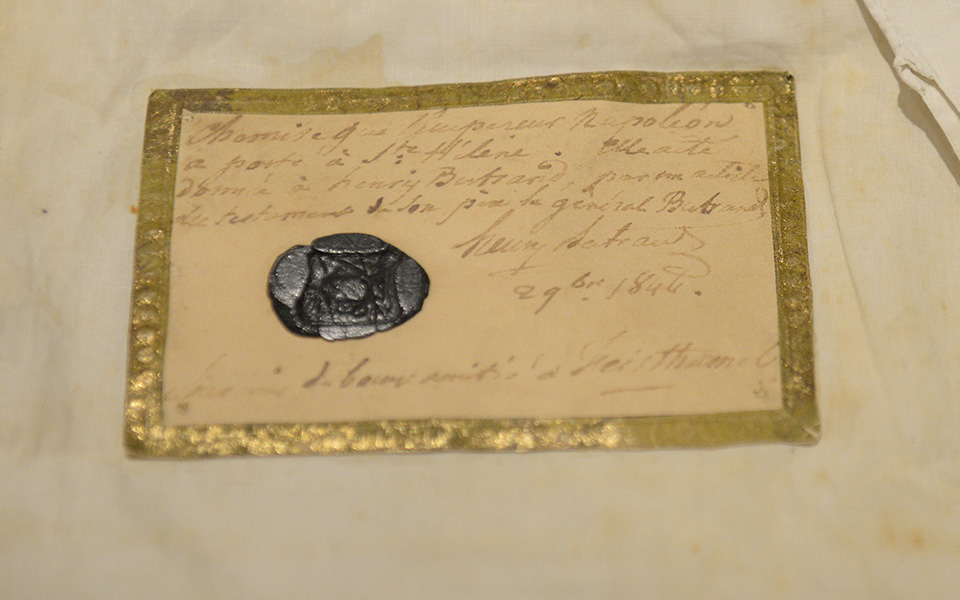 Chemise que l'empereur Napoléon
a porté à Ste Hélène. Elle a été
donnée à henry Bertrand, par un article
du testament de son père le général Bertrand
henry Bertrand
29bre 1844.
de bonne amitié à